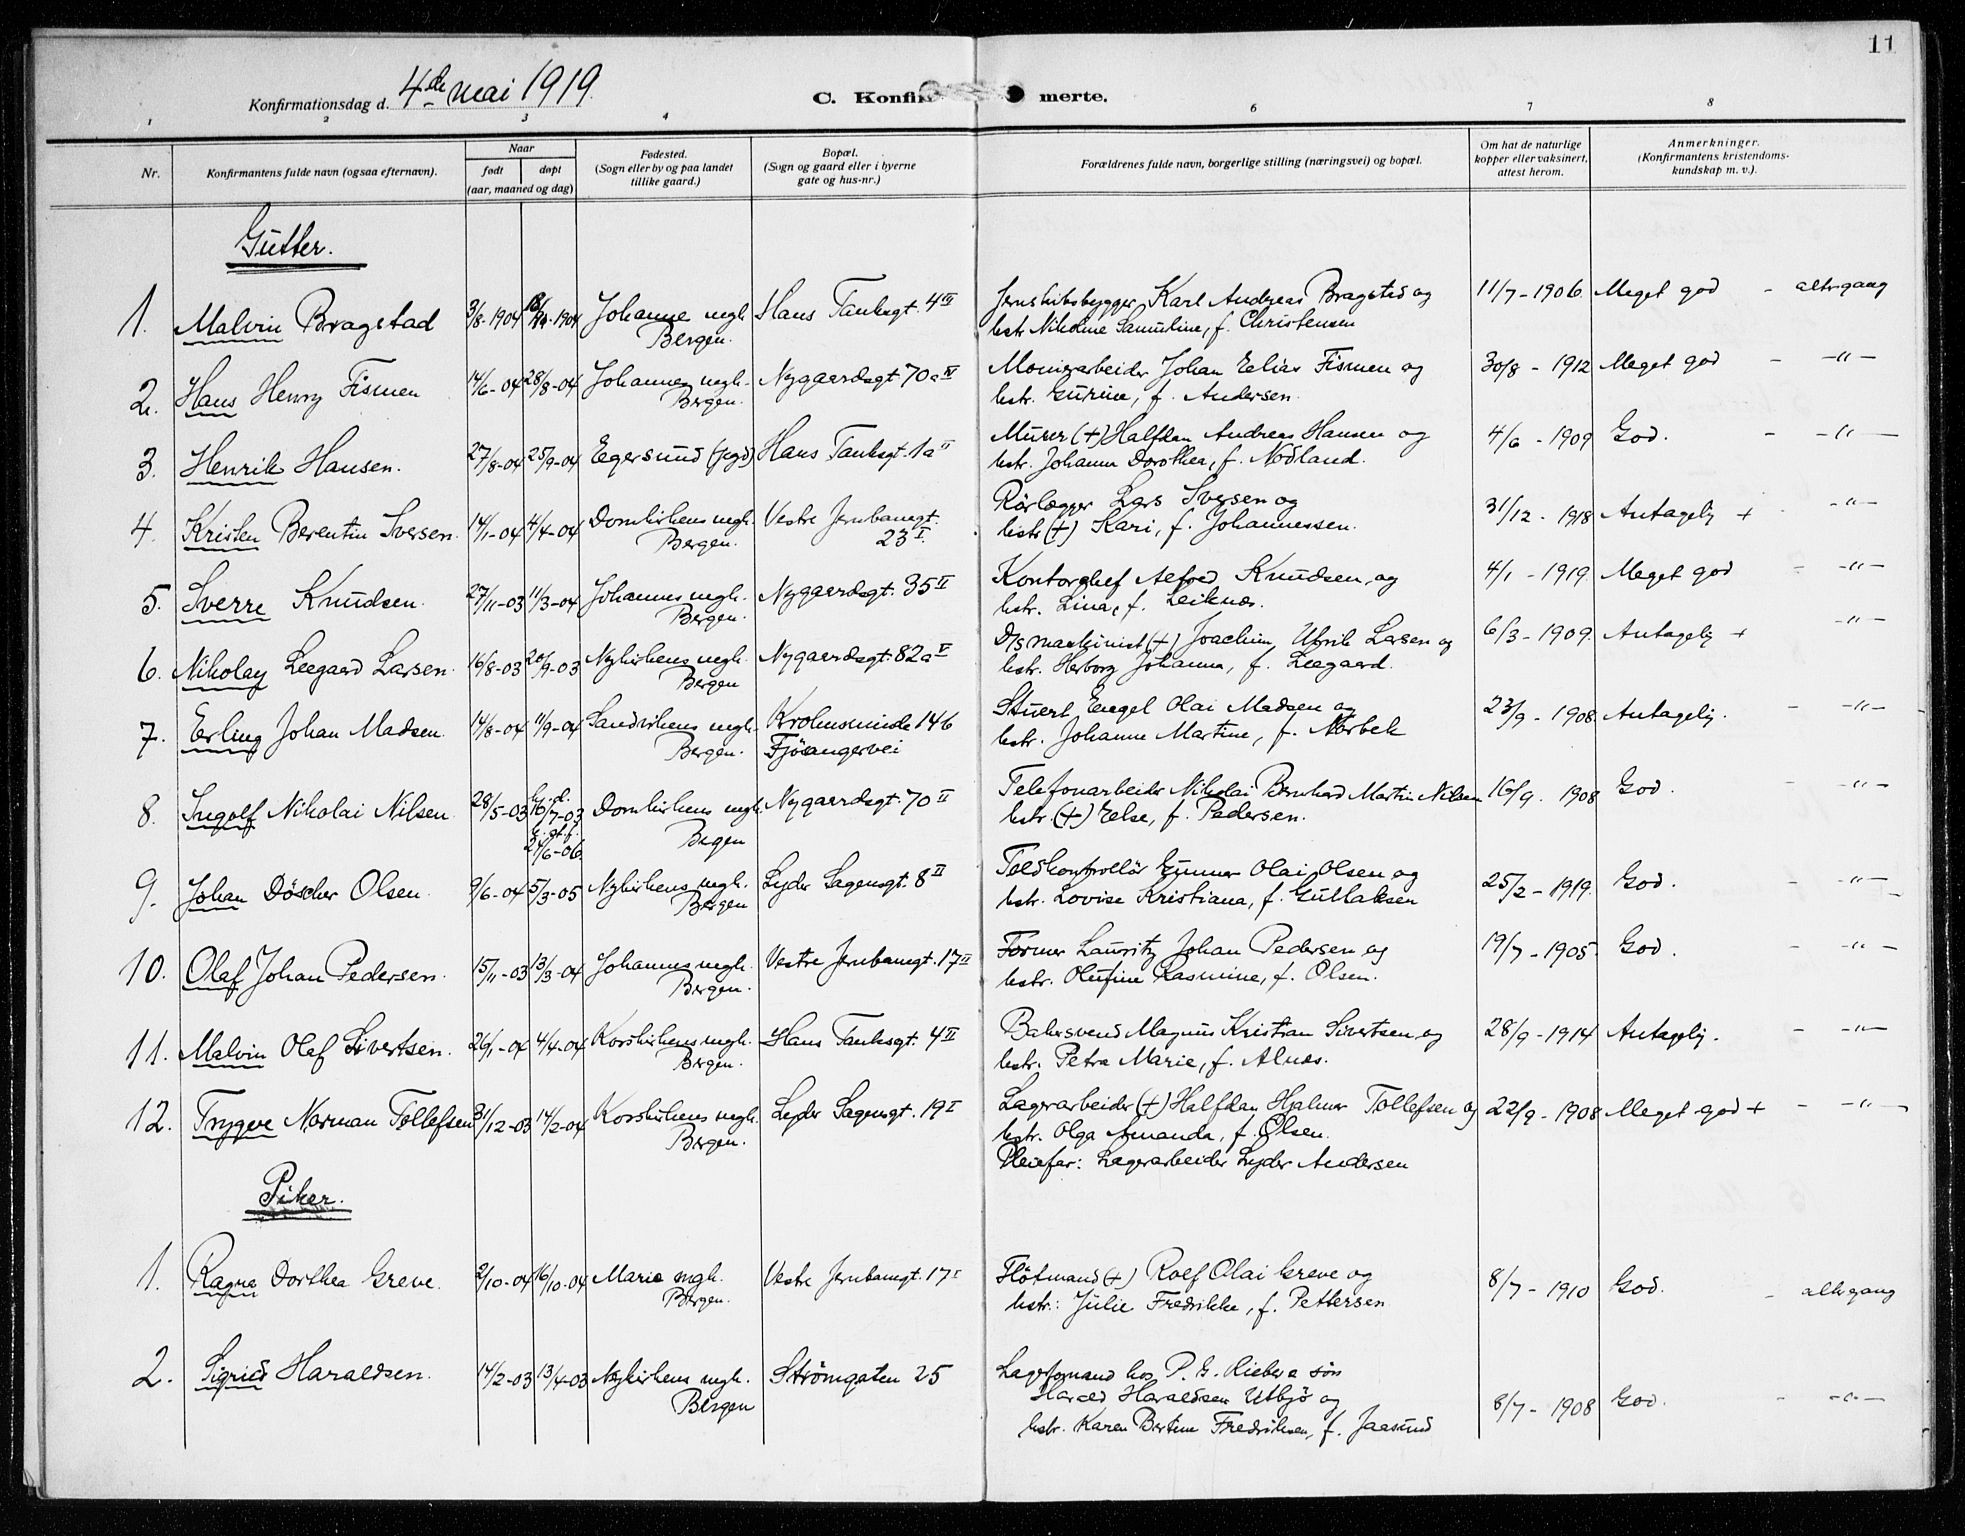 11
Konfirmationsdag d. 4de mai 1919.
C. Konfir merte.
1 2 3 4 6 7 8
Nr.
Konfirmantens fulde navn (ogsaa efternavn).
Naar
født døpt
(aar, maaned og dag)
Fødested.
(Sogn eller by og paa landet
tillike gaard.)
Bopæl.
(Sogn og gaard eller i byerne
gate og hus-nr.)
Forældrenes fulde navn, borgerlige stilling (næringsvei) og bopæl.
Om hat de naturlige
kopper eller vaksinert,
attest herom.
Anmerkninger.
(Konfirmantens kristendoms-
kundskap m. v.).
Gutter.
1. Malvin Bragstad 3/8-1904 -1904 Johanne megh. Bergen. Hans Tanksgt. 4 III
Jernskibsbygger Karl Andreas Bragstad og
hstr. Nikoline Samuline, f. Christensen
11/7-1906 Meget god - altergang
2. Hans Henry Fismen 14/6-04 28/8-04 Johannes megh. Bergen. Nygaardsgt. 70a IV
Monierarbeider Johan Elias Fismen og
hstr. Gurine, f. Andersen.
30/8-1912 Meget god - -"-
3. Henrik Hansen. 27/8-04 25/9-04 Egersund (pgd) Hans Tanksgt. 1a II
Murer (+) Halfdan Andreas Hansen og
hstr. Johanna Dorothea, f. Nodland.
4/6-1909 God. - -"-
4. Kristen Berentin Iversen. 14/1-04 4/4-04 Domkirkens megh. Bergen. Vestre Jernbanegt. 23 I.
Rörlægger Lars Iversen og
hstr (+) Kari, f. Johannessen.
31/12-1918 Antagelig + -"-
5. Sverre Knudsen. 27/11-03 11/3-04 Johannes megh. Bergen. Nygaardsgt. 35 II
Kontorchef Alfred Knudsen, og
hstr. Lina, f. Leiknes.
4/1-1919. Meget god - -"-
6. Nikolay Leegaard Larsen. 16/8-03 20/9-03 Nykirkens megh. Bergen Nygaardsgt. 82a V
D/s maskinist (+) Joachim Ulrik Larsen og
hstr. Herborg Johanna, f. Leegaard.
6/3-1909. Antagelig + -"-
7. Erling Johan Madsen. 14/8-04 11/9-04 Sandvikens megh. Bergen. Krohnsminde 146 Fjösangervei
Stuert Engel Olai Madsen og
hstr. Johanne Martine, f. Norbek
23/9-1908 Antagelig. - -"-
8. Ingolf Nikolai Nilsen. 28/5-03 h.d. 16/7-03 24/6-06. Domkirkens megh. Bergen Nygaardsgt. 70 II
Telefonarbeider Nikolai Bernhard Martin Nilsen
hstr. (+) Else, f. Pedersen.
16/9. 1908 God. - -"-
9. Johan Döscher Olsen. 9/6-04 5/3-05 Nykirkens megh. Bergen Lyder Sagensgt. 8 II
Toldkontrollör Gunnar Olai Olsen og
hstr. Lovise Kristiana, f. Gullaksen
25/2-1919. God. - -"-
10. Olaf Johan Pedersen. 15/11-03 13/3-04 Johannes megh. Bergen. Vestre Jernbanegt. 17 II
Former Lauritz Johan Pedersen og
hstr. Olufine Rasmine, f. Olsen.
19/7-1905. God. - -"-
11. Malvin Olaf Sivertsen. 26/1-04 4/4-04 Korskirkens megh. Bergen. Hans Tanksgt. 4 II
Bakersvend Magnus Kristian Sivertsen og
hstr. Petra Marie, f. Alnæs.
28/9-1914 Antagelig. - -"-
12. Trygve Norman Tollefsen 31/12-03 14/2-04 Korskirkens megh. Bergen. Lyder Sagensgt. 19 I
Lagerarbeider (+) Halfdan Hjalmar Tollefsen og
hstr. Olga Amanda, f. Olsen.
Pleiefar: Lagerarbeider Lyder Andersen
22/9-1908 Meget god + - -"-
Piker.
1. Ragna Dorthea Greve. 2/10-04 16/10-04 Marie megh. Bergen. Vestre Jernbanegt. 17 I
Flötmand (+) Rolf Olai Greve og
hstr: Julie Fredrikke, f. Pettersen
8/7-1910 God. - altergang
2. Sigrid Haraldsen. 14/2-03 13/4-03 Nykirkens megh. Bergen Strömgaten 25
Lagerformand hos P. G. Rieber & sön
Harald Haraldsen Utbjö og
hstr. Karen Bertine Fredriksen, f. Jaasund
8/7-1908 God. - -"-